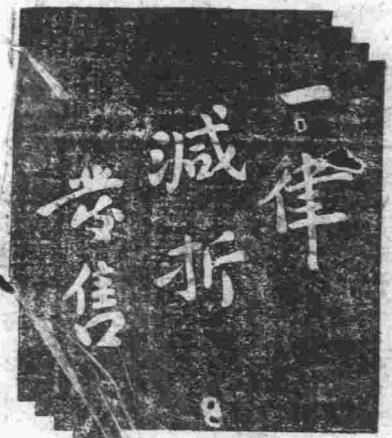 一律
減折
發售